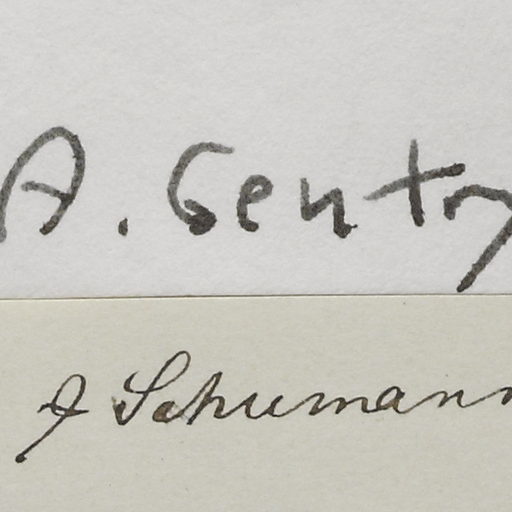 A. Gentry
J Schumann